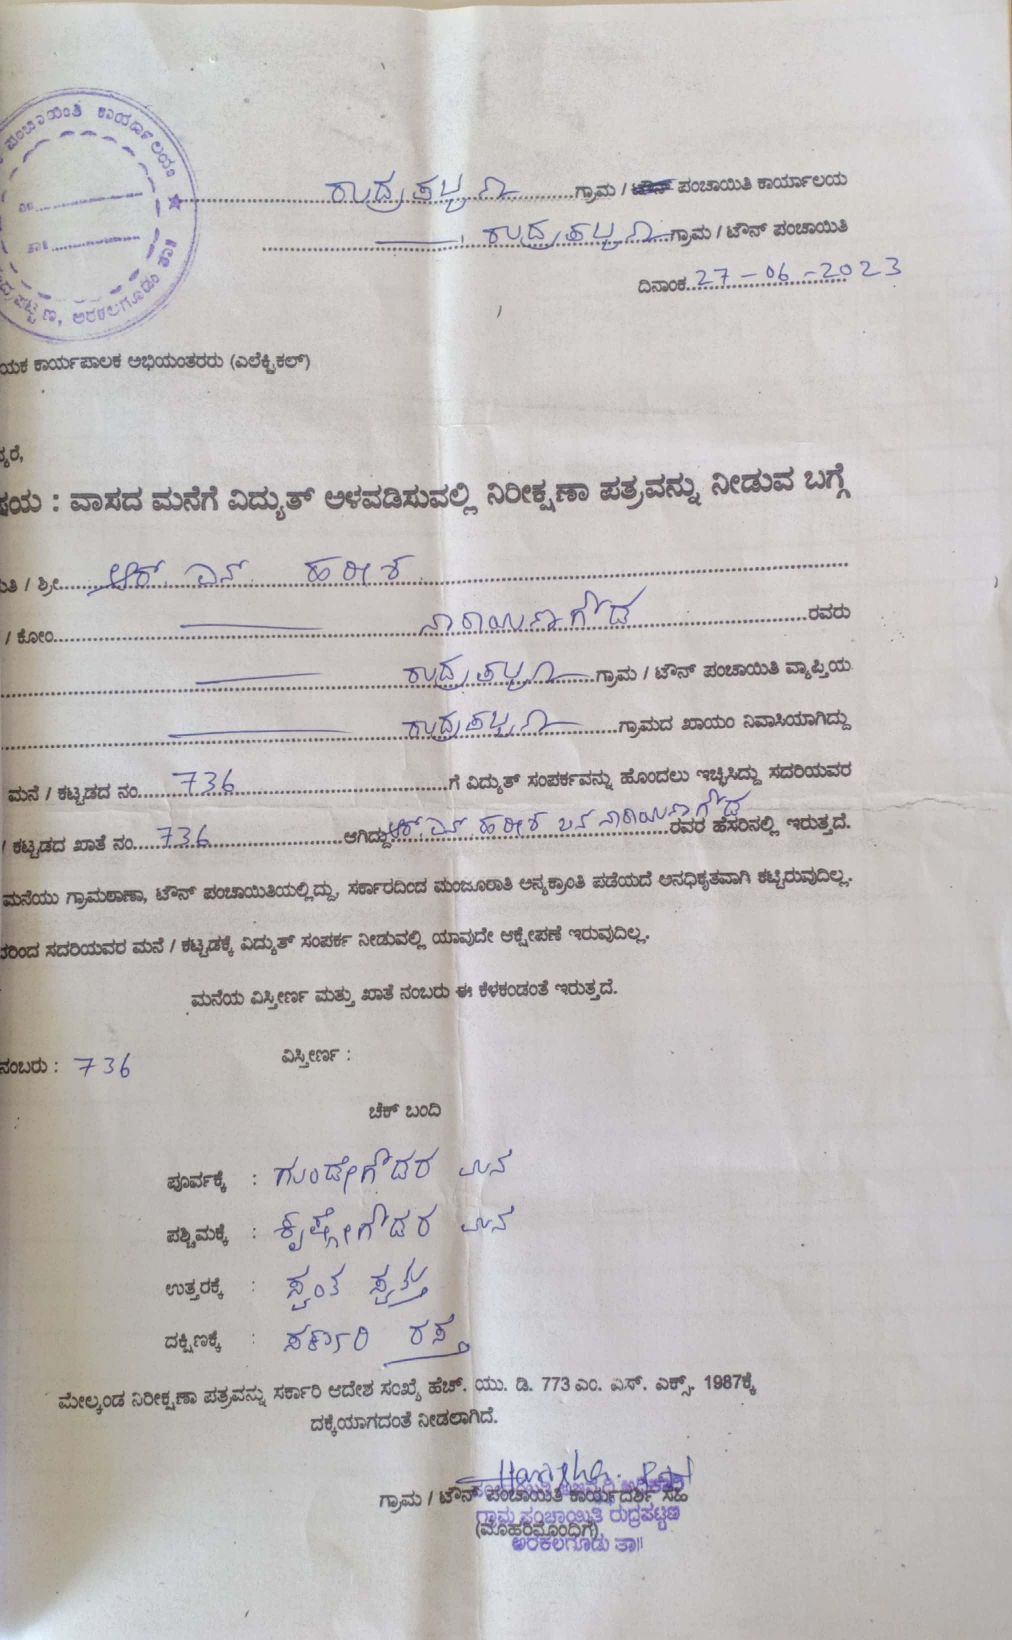 ಪಂಚಾಯಿತಿ ಕಾರ್ಯಾಲಯ
ಅರಕಲಗೂಡು ತಾ॥
ರುದ್ರಪಟ್ಟಣ ಗ್ರಾಮ / ಟೌನ್ ಪಂಚಾಯಿತಿ ಕಾರ್ಯಾಲಯ
ರುದ್ರಪಟ್ಟಣ ಗ್ರಾಮ / ಟೌನ್ ಪಂಚಾಯಿತಿ
ದಿನಾಂಕ 27-06-2023
ಯಕ ಕಾರ್ಯಪಾಲಕ ಅಭಿಯಂತರರು (ಎಲೆಕ್ಟ್ರಿಕಲ್)
ರೆ,
ಷಯ : ವಾಸದ ಮನೆಗೆ ವಿದ್ಯುತ್ ಅಳವಡಿಸುವಲ್ಲಿ ನಿರೀಕ್ಷಣಾ ಪತ್ರವನ್ನು ನೀಡುವ ಬಗ್ಗೆ
ತಿ / ಶ್ರೀ ಆರ್. ಎನ್. ಹರೀಶ
/ ಕೋಂ ನಾರಾಯಣಗೌಡ ರವರು
ರುದ್ರಪಟ್ಟಣ ಗ್ರಾಮ / ಟೌನ್ ಪಂಚಾಯಿತಿ ವ್ಯಾಪ್ತಿಯ
ರುದ್ರಪಟ್ಟಣ ಗ್ರಾಮದ ಖಾಯಂ ನಿವಾಸಿಯಾಗಿದ್ದು
ಮನೆ / ಕಟ್ಟಡದ ನಂ. 736 ಗೆ ವಿದ್ಯುತ್ ಸಂಪರ್ಕವನ್ನು ಹೊಂದಲು ಇಚ್ಛಿಸಿದ್ದು ಸದರಿಯವರ
/ ಕಟ್ಟಡದ ಖಾತೆ ನಂ. 736 ಆಗಿದ್ದು ಆರ್ ಎನ್ ಹರೀಶ ಬಿನ ನಾರಾಯಣಗೌಡ ರವರ ಹೆಸರಿನಲ್ಲಿ ಇರುತ್ತದೆ.
ಮನೆಯು ಗ್ರಾಮಠಾಣಾ, ಟೌನ್ ಪಂಚಾಯಿತಿಯಲ್ಲಿದ್ದು, ಸರ್ಕಾರದಿಂದ ಮಂಜೂರಾತಿ ಅನ್ಯಕ್ರಾಂತಿ ಪಡೆಯದೆ ಅನಧಿಕೃತವಾಗಿ ಕಟ್ಟಿರುವುದಿಲ್ಲ.
ದರಿಂದ ಸದರಿಯವರ ಮನೆ / ಕಟ್ಟಡಕ್ಕೆ ವಿದ್ಯುತ್ ಸಂಪರ್ಕ ನೀಡುವಲ್ಲಿ ಯಾವುದೇ ಆಕ್ಷೇಪಣೆ ಇರುವುದಿಲ್ಲ.
ಮನೆಯ ವಿಸ್ತೀರ್ಣ ಮತ್ತು ಖಾತೆ ನಂಬರು ಈ ಕೆಳಕಂಡಂತೆ ಇರುತ್ತದೆ.
ನಂಬರು : 736 ವಿಸ್ತೀರ್ಣ :
ಚೆಕ್ ಬಂದಿ
ಪೂರ್ವಕ್ಕೆ : ಗುಂಡೇಗೌಡರ ಮನೆ
ಪಶ್ಚಿಮಕ್ಕೆ : ಕೃಷ್ಣೇಗೌಡರ ಮನೆ
ಉತ್ತರಕ್ಕೆ : ಸ್ವಂತ ಸ್ವತ್ತು
ದಕ್ಷಿಣಕ್ಕೆ : ಸರ್ಕಾರಿ ರಸ್ತೆ
ಮೇಲ್ಕಂಡ ನಿರೀಕ್ಷಣಾ ಪತ್ರವನ್ನು ಸರ್ಕಾರಿ ಆದೇಶ ಸಂಖ್ಯೆ ಹೆಚ್. ಯು. ಡಿ. 773 ಎಂ. ಎಸ್. ಎಕ್ಸ್. 1987ಕ್ಕೆ
ದಕ್ಕೆಯಾಗದಂತೆ ನೀಡಲಾಗಿದೆ.
ಗ್ರಾಮ / ಟೌನ್ ಪಂಚಾಯಿತಿ ಕಾರ್ಯದರ್ಶಿ ಸಹಿ
(ಮೊಹರಿನೊಂದಿಗೆ)
ಗ್ರಾಮ ಪಂಚಾಯಿತಿ ರುದ್ರಪಟ್ಟಣ
ಅರಕಲಗೂಡು ತಾ॥